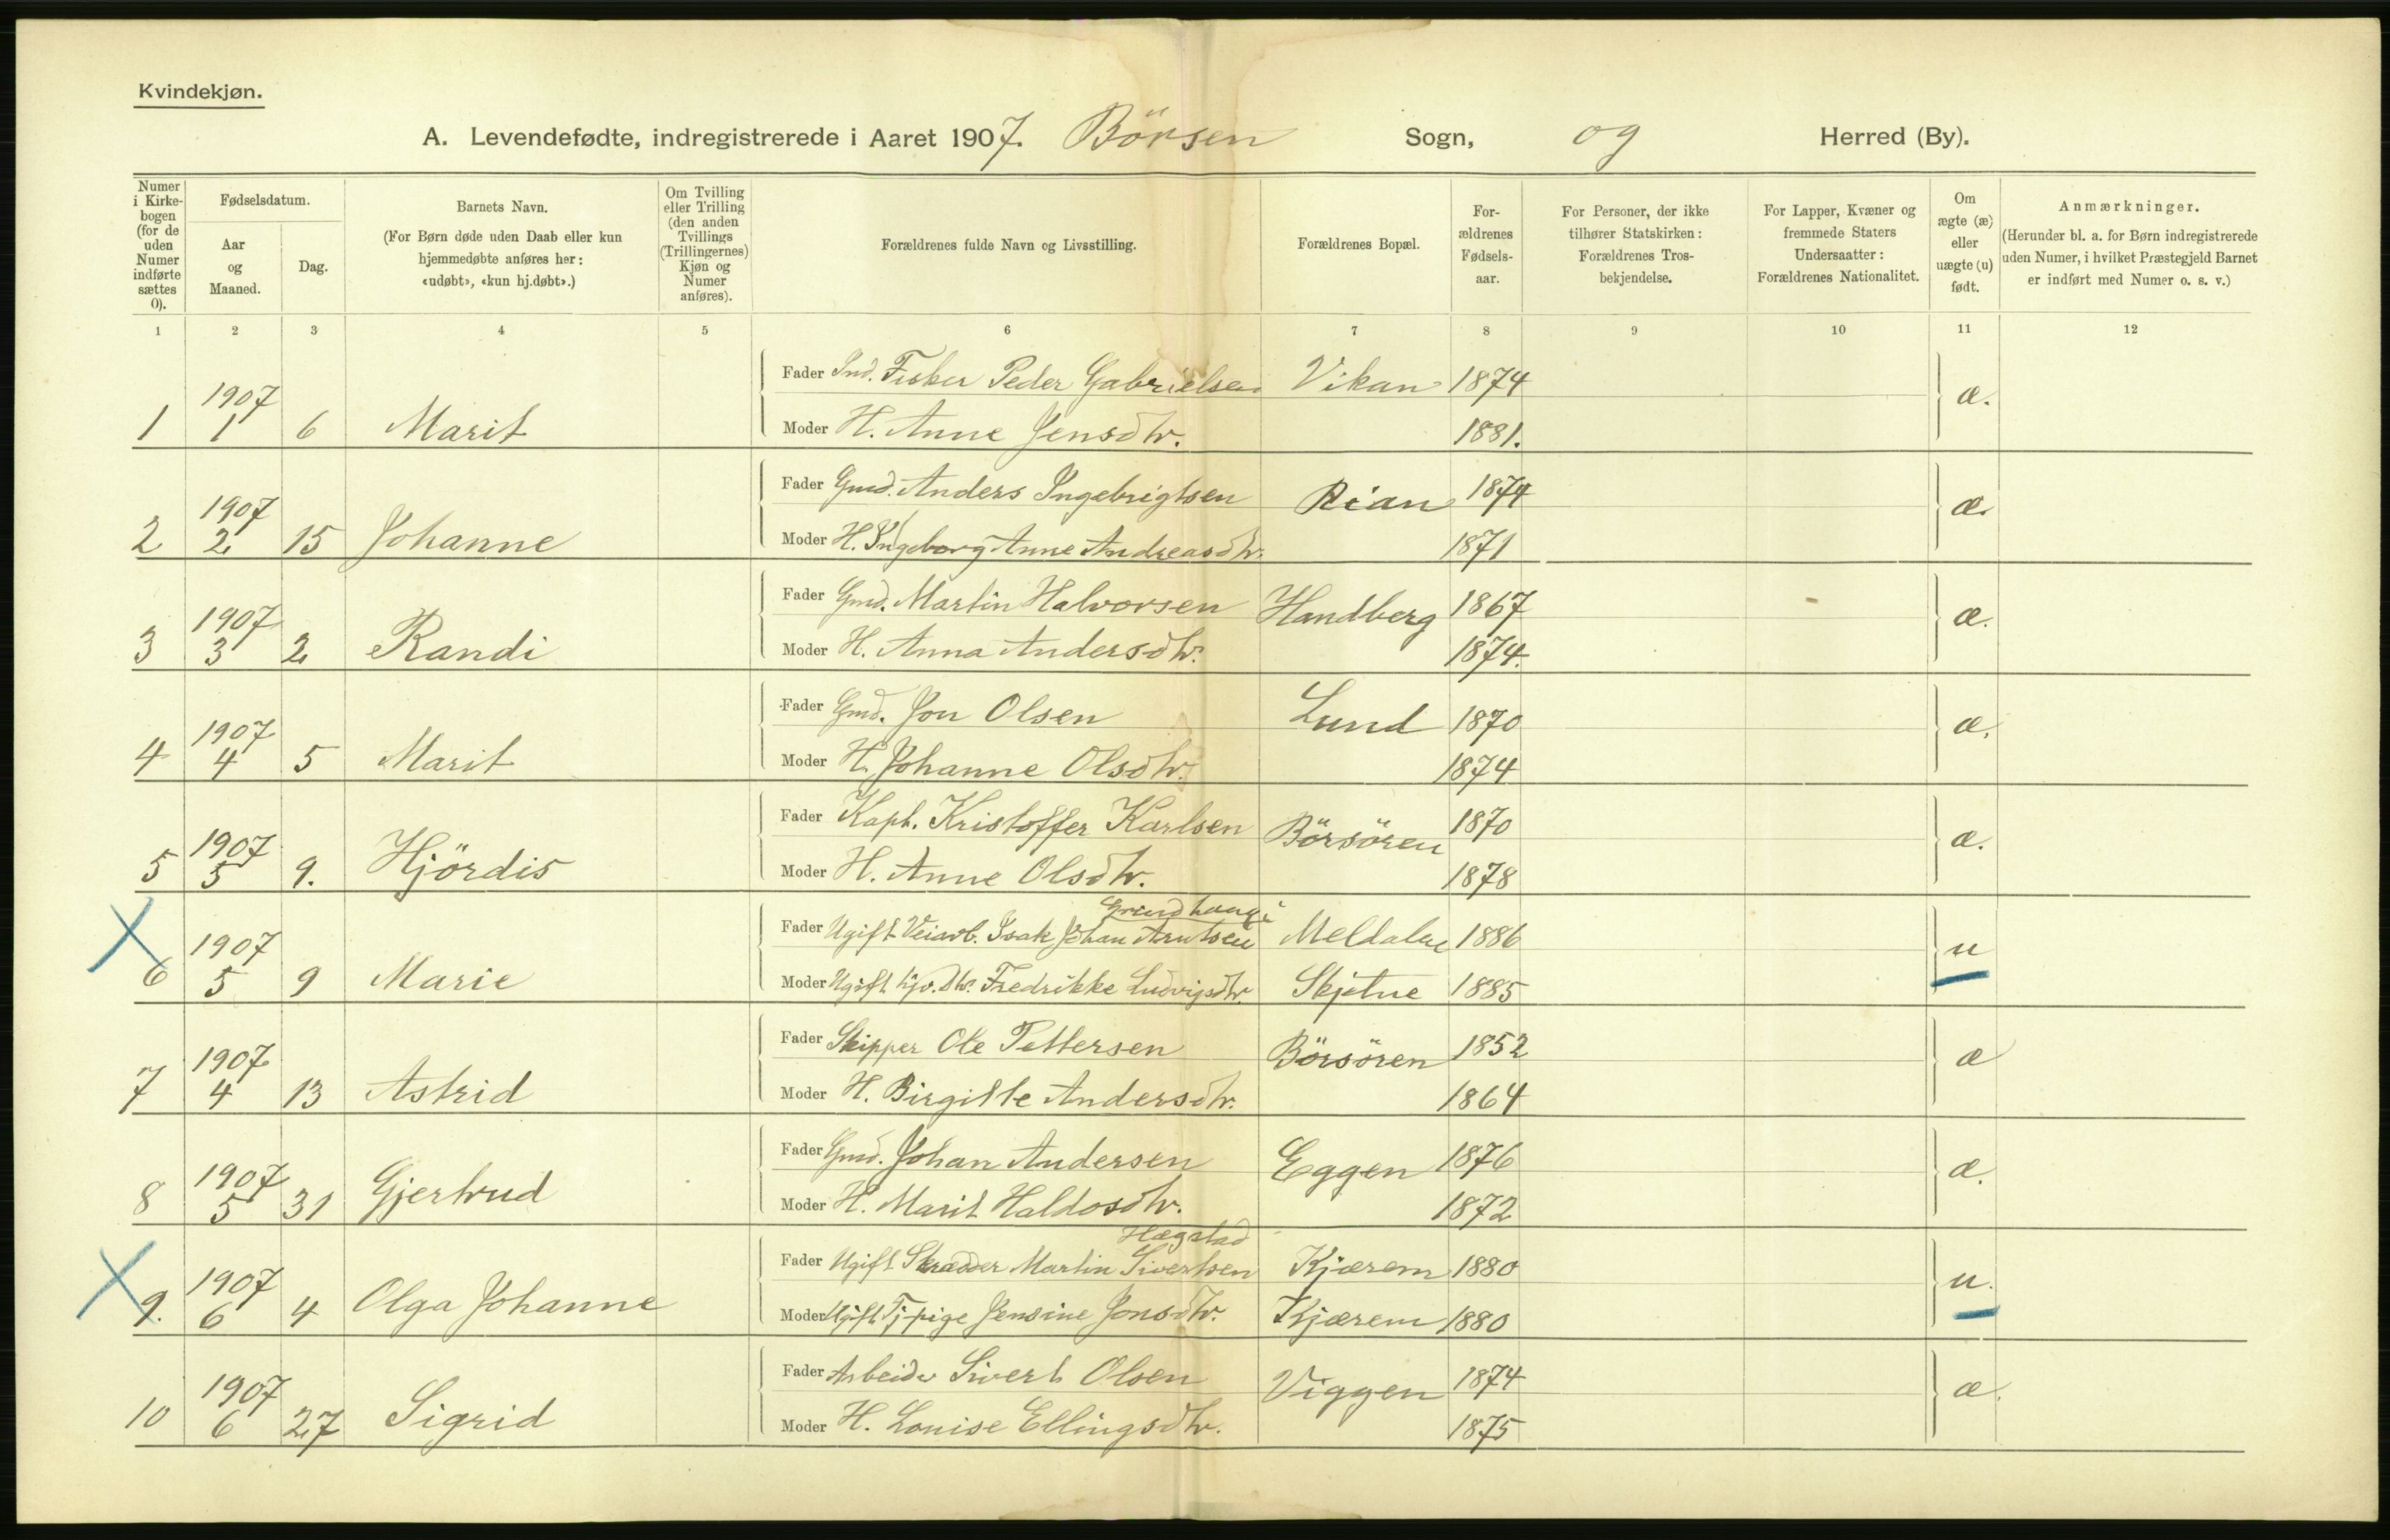 Kvindekjøn.
A. Levendefødte, indregistrerede i Aaret 1907. Börsen Sogn, og Herred (By).
Numer i Kirkebogen (for de uden Numer indførte sættes 0).
Fødselsdatum.
Aar og Maaned.
Dag.
Barnets Navn.
(For Børn døde uden Daab eller kun hjemmedøbte anføres her: «udøbt», «kun hj.døbt».)
Om Tvilling eller Trilling (den anden Tvillings (Trillingernes) Kjøn og Numer anføres).
Forældrenes fulde Navn og Livsstilling.
Forældrenes Bopæl.
Forældrenes Fødselsaar.
For Personer, der ikke tilhører Statskirken: Forældrenes Trosbekjendelse.
For Lapper, Kvæner og fremmede Staters Undersaatter: Forældrenes Nationalitet.
Om ægte (æ) eller uægte (u) født.
Anmærkninger.
(Herunder bl. a. for Børn indregistrerede uden Numer, i hvilket Præstegjeld Barnet er indført med Numer o. s. v.)
1 2 3 4 5 6 7 8 9 10 11 12
Fader Ind. Fisker Peder Gabrielsen Vikan 1874 æ.
1 1907 1 6 Marit
Moder H. Anne Jensdtr. 1881.
Fader Gmd. Anders Ingebrigtsen Rian 1874 æ.
2 1907 2 15 Johanne
Moder H. Ingeborg Anne Andreasdtr. 1871
Fader Gmd. Martin Halvorsen Handberg 1867 æ.
3 1907 3 2 Randi
Moder H. Anna Andersdtr. 1874.
Fader Gmd. Jon Olsen Lund 1870 æ.
4 1907 4 5 Marit
Moder H. Johanne Olsdtr. 1874
Fader Kapt. Kristoffer Karlsen Börsören 1870 æ.
5 1907 5 9. Hjördis
Moder H. Anne Olsdtr. 1878
Fader Ugift Veiarb. Isak Johan Arntsen Meldalen 1886 u
6 1907 5 9 Marie
Moder Ugift Fredrikke Ludvigsdtr Skjetne 1885
Fader Skipper Ole Pettersen Börsören 1852 æ
7 1907 4 13 Astrid
Moder H. Birgitte Andersdtr. 1864
Fader Gmd. Johan Andersen Eggen 1876 æ.
8 1907 5 31 Gjertrud
Moder H. Marit Haldosdtr. 1872
Hægstad
Fader Ugift Skrædder Martin Sivertsen Kjærem 1880 u.
9. 1907 6 4 Olga Johanne
Moder Ugift Tj.pige Jensine Jonsdtr. Kjærem 1880
Fader Arbeider Sivert Olsen Viggen 1874 æ.
10 1907 6 27 Sigrid
Moder H. Louise Ellingsdtr. 1875